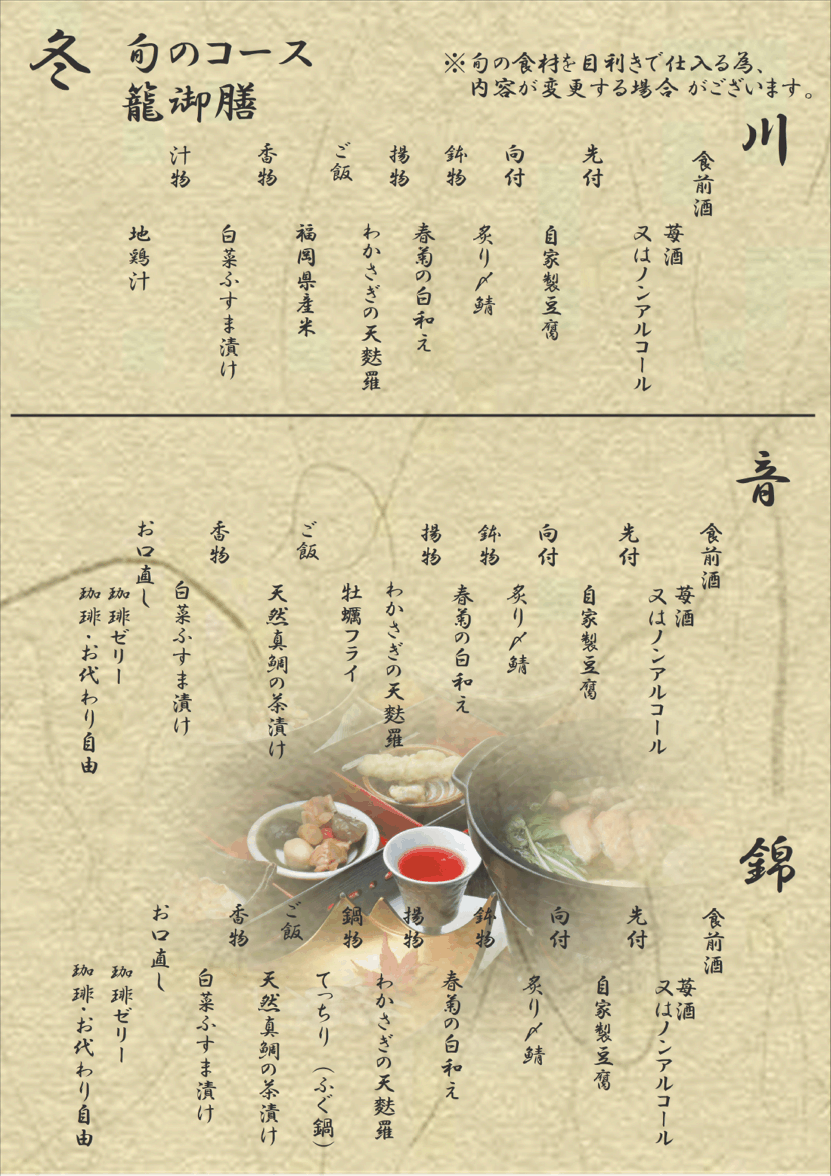 冬
旬のコース
籠御膳
※旬の食材を目利きで仕入る為、
内容が変更する場合 がございます。
川
食前酒
苺酒
又はノンアルコール
先付
自家製豆腐
向付
炙り〆鯖
鉢物
春菊の白和え
揚物
わかさぎの天麩羅
ご飯
福岡県産米
香物
白菜ふすま漬け
汁物
地鶏汁
音
食前酒
苺酒
又はノンアルコール
先付
自家製豆腐
向付
炙り〆鯖
鉢物
春菊の白和え
揚物
わかさぎの天麩羅
牡蠣フライ
ご飯
天然真鯛の茶漬け
香物
白菜ふすま漬け
お口直し
珈琲ゼリー
珈琲・お代わり自由
錦
食前酒
苺酒
又はノンアルコール
先付
自家製豆腐
向付
炙り〆鯖
鉢物
春菊の白和え
揚物
わかさぎの天麩羅
鍋物
てっちり（ふぐ鍋）
ご飯
天然真鯛の茶漬け
香物
白菜ふすま漬け
お口直し
珈琲ゼリー
珈琲・お代わり自由